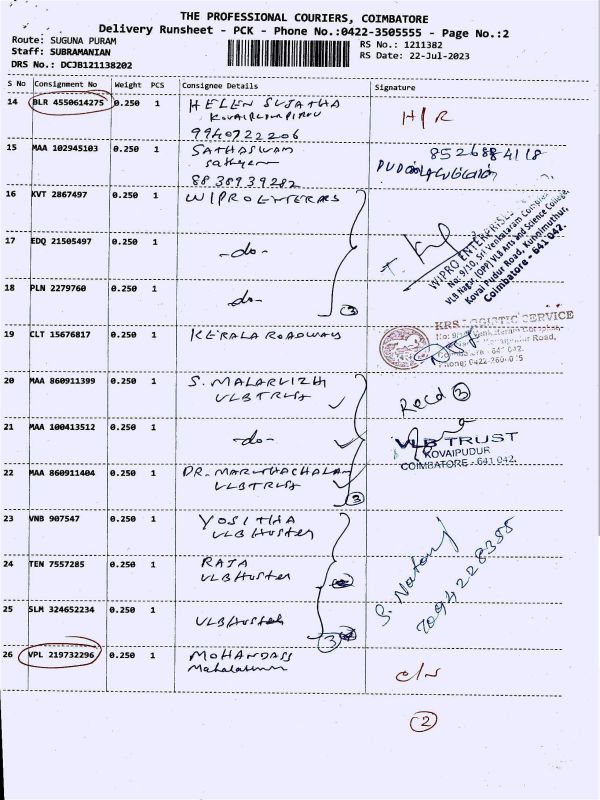 THE PROFESSIONAL COURIERS, COIMBATORE
Delivery Runsheet - PCK - Phone No.:0422-3505555 - Page No.:2
Route: SUGUNA PURAM
RS No.: 1211382
Staff: SUBRAMANIAN
RS Date: 22-Jul-2023
DRS No.: DCJB121138202
S No Consignment No Weight PCS Consignee Details Signature
14 BLR 4550614275 0.250 1 HELEN SUJATHA H/R
9940722206
15 MAA 102945103 0.250 1 SATHASWAM 8526884118
8838939282
16 KVT 2867497 0.250 1 WIPRO ENTERPRISES
WIPRO ENTERPRISES
No: 9/10, Sri Venkatram Complex
VLB Nagar (OPP) VLB Arts and Science College,
Kovai Pudur Road, Kuniamuthur,
Coimbatore - 641 042.
17 EDQ 21505497 0.250 1 -do-
18 PLN 2279760 0.250 1 -do-
3
19 CLT 15676817 0.250 1 KERALA ROADWAYS
KRS LOGISTIC SERVICE
20 MAA 860911399 0.250 1 S. MALARVIZH Recd 3
VLB TRUST
21 MAA 100413512 0.250 1 -do-
VLB TRUST
KOVAIPUDUR
COIMBATORE - 641 042.
22 MAA 860911404 0.250 1 DR. MARUTHACHALAM
VLB TRUST
3
23 VNB 907547 0.250 1 YOSITHA
VLB Hostel
24 TEN 7557285 0.250 1 RAJA
VLB Hostel
S. Nataraj
7094228388
25 SLM 324652234 0.250 1 VLB Hostel
3
26 VPL 219732296 0.250 1 MOHANDASS
C/N
2